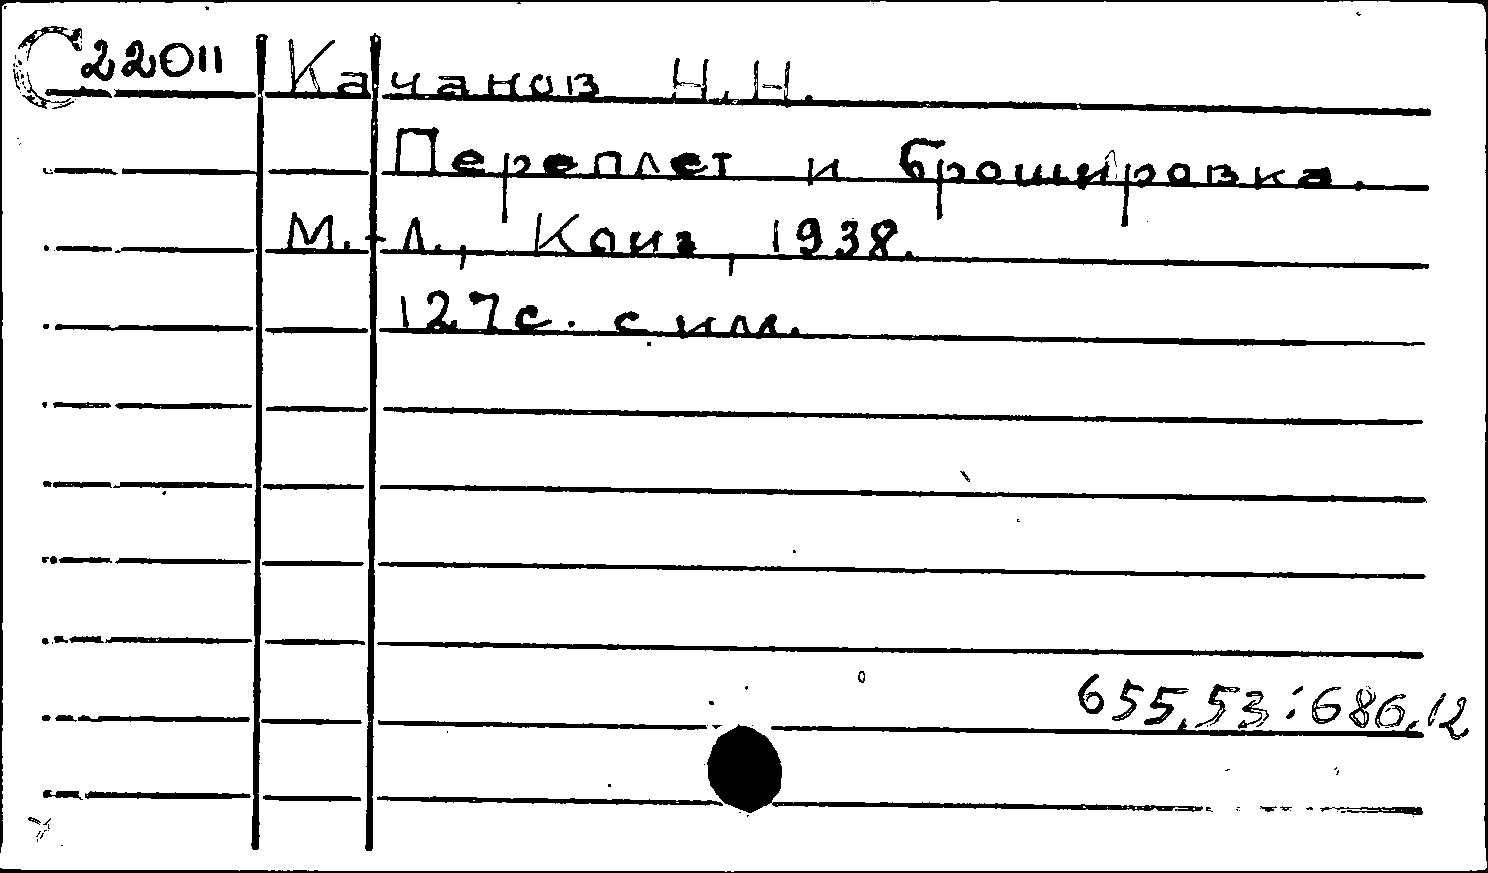 С22011 Качанов Н.Н.
Переплет и брошировка.
М.-Л., Коиз, 1938.
127с. с илл.
655.53:686.12